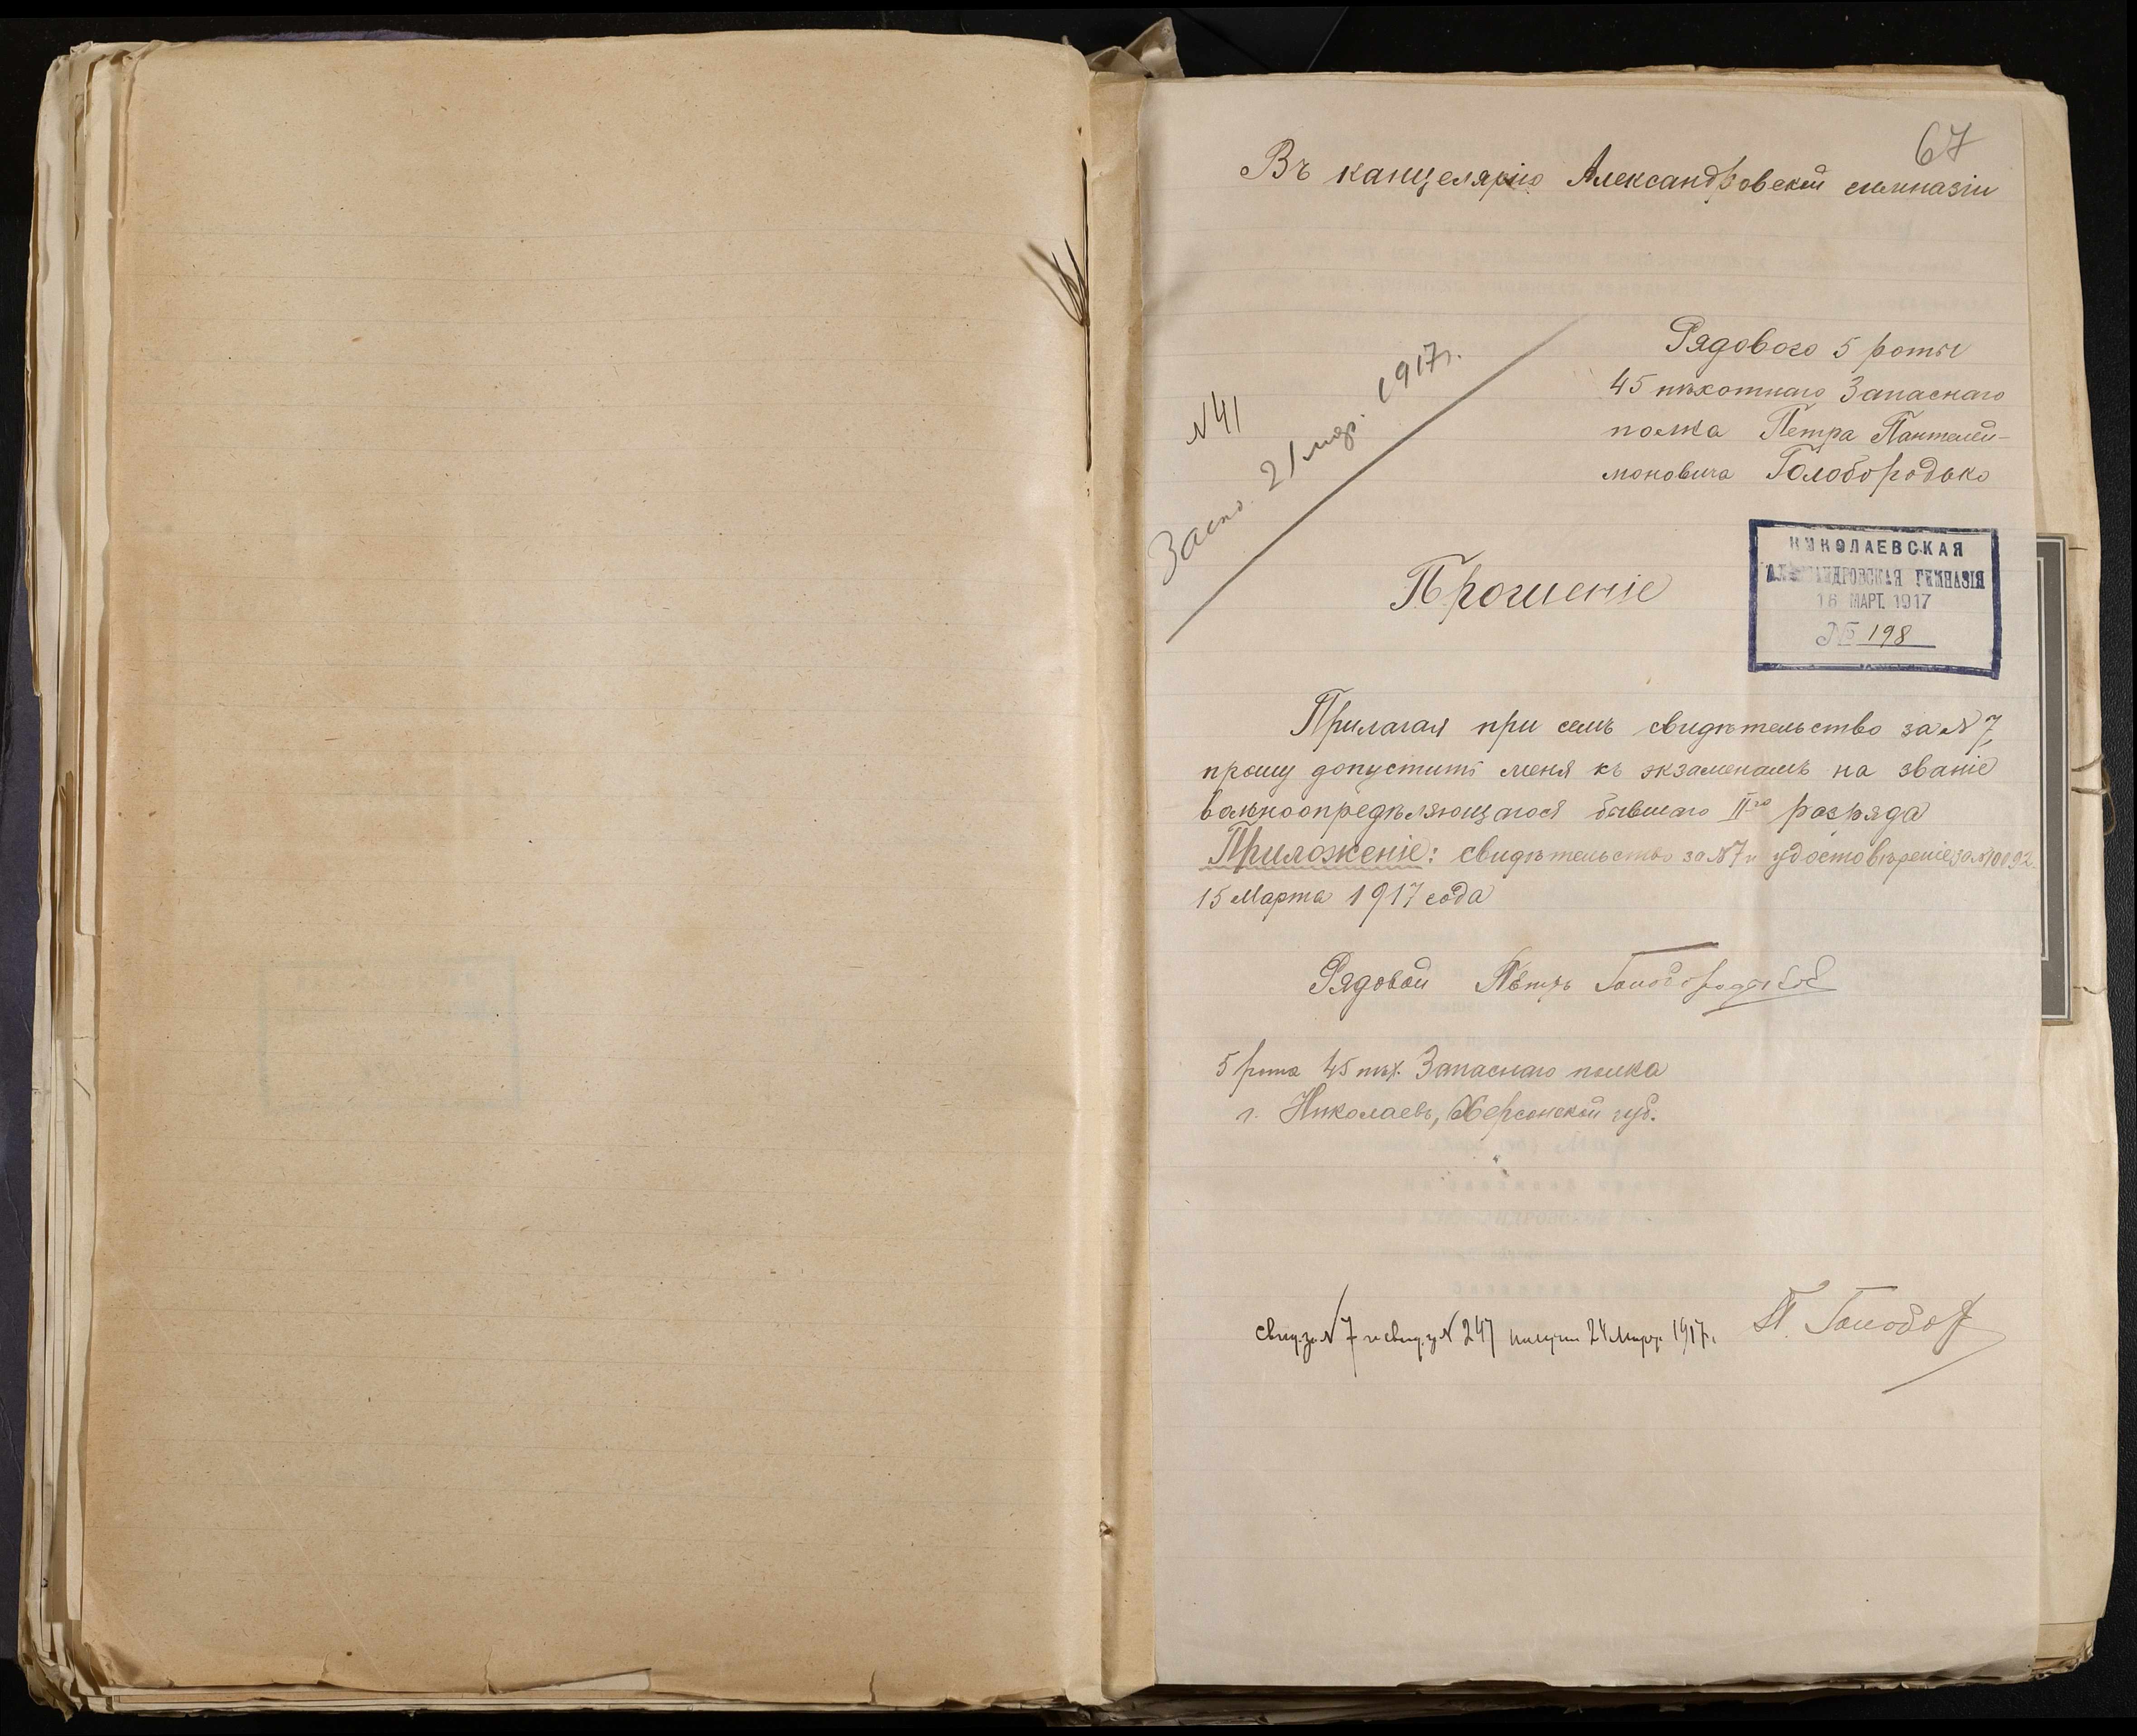 67
Въ канцелярію Александровской гимназіи
Рядового 5 роты
45 пѣхотнаго Запаснаго
полка Петра Пантелей-
моновича Голобородько
№ 41
21 мар. 1917 г.
НИКОЛАЕВСКАЯ
АЛЕКСАНДРОВСКАЯ ГИМНАЗІЯ
16 МАРТ. 1917
№ 198
Прошеніе
Прилагая при семъ свидѣтельство за № 7,
прошу допустить меня къ экзаменамъ на званіе
вольноопредѣляющагося бывшаго II-го разряда
Приложеніе: свидѣтельство за № 7 и удостовѣреніе за № 10192
15 Марта 1917 года
Рядовой Петръ Голобородько
5 рота 45 пѣх. Запаснаго полка
г. Николаевъ, Херсонской губ.
Свид. за № 7 и свид. за № 247 получил 24 Мар. 1917 г. П. Голобор